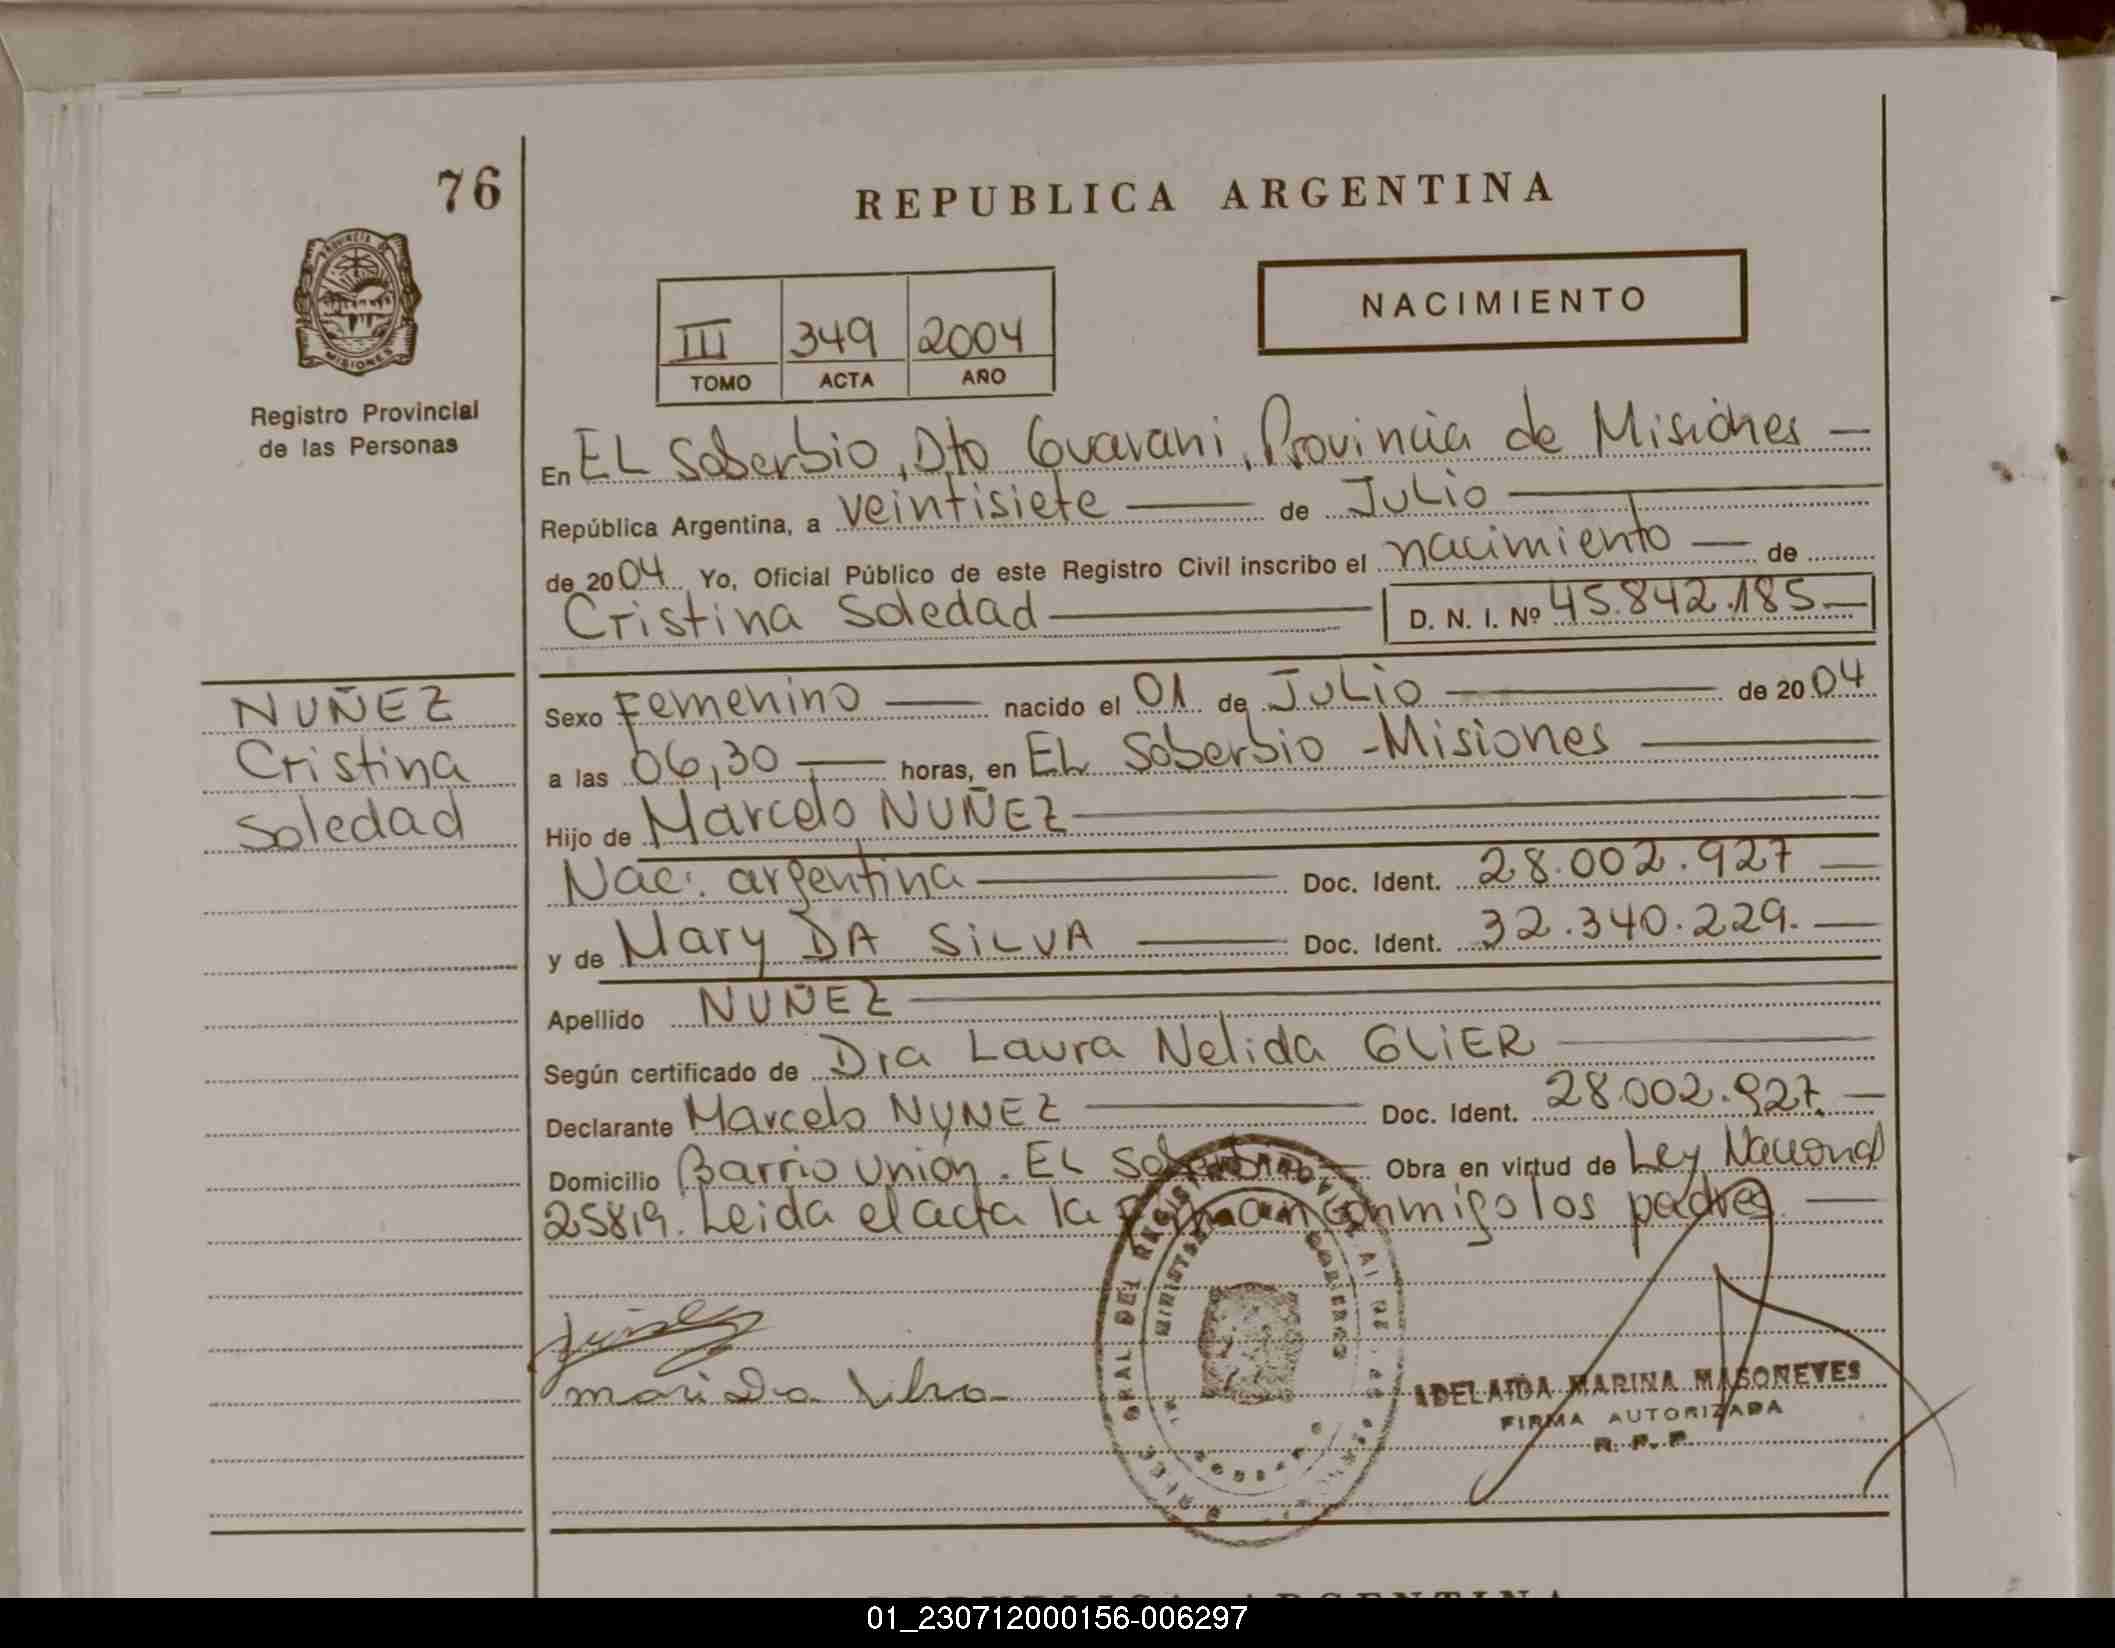 76
REPUBLICA ARGENTINA
PROVINCIA DE
MISIONES
Registro Provincial
de las Personas
NACIMIENTO
III 349 2004
TOMO ACTA AÑO
En EL Soberbio, Dto Guarani, Provincia de Misiones
República Argentina, a veintisiete de Julio
de 2004 Yo, Oficial Público de este Registro Civil inscribo el nacimiento de
Cristina Soledad D. N. I. Nº 45.842.185
NUÑEZ
Cristina
Soledad
Sexo Femenino nacido el 01 de Julio de 2004
a las 06,30 horas, en EL Soberbio - Misiones
Hijo de Marcelo NUÑEZ
Nac. argentina Doc. Ident. 28.002.927
y de Mary DA SILVA Doc. Ident. 32.340.229.
Apellido NUÑEZ
Según certificado de Dra Laura Nelida GLIER
Declarante Marcelo NUNEZ Doc. Ident. 28.002.927.
Domicilio Barrio Union. EL Soberbio Obra en virtud de Ley Nacional
25819. Leida el acta la firman conmigo los padres
ADELAIDA MARINA MASONEVES
FIRMA AUTORIZADA
R. P. P.
REPUBLICA ARGENTINA
01_230712000156-006297